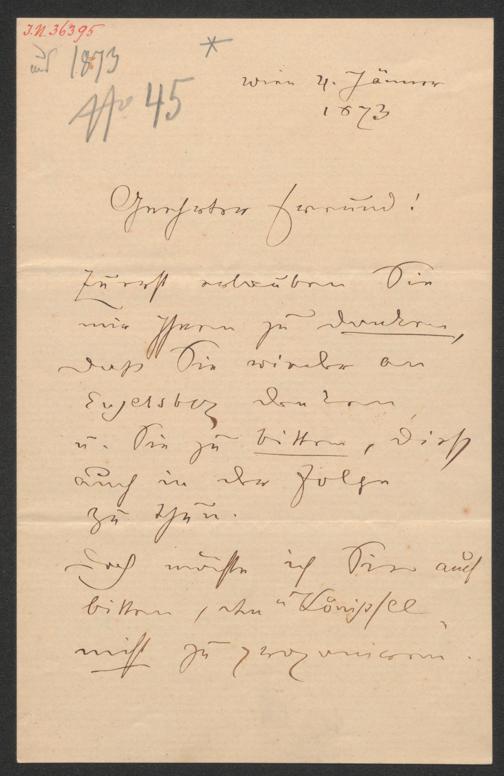 J.N. 36395
1873
No 45
Wien 4. Jänner
1873
Geehrter Freund!
Zuerst erlauben Sie
mir Ihnen zu danken,
daß Sie wieder an
Engelsberg denken
u. Sie zu bitten, dieß
auch in der Folge
zu thun.
Doch möchte ich Sie auch
bitten, den "
nicht zu